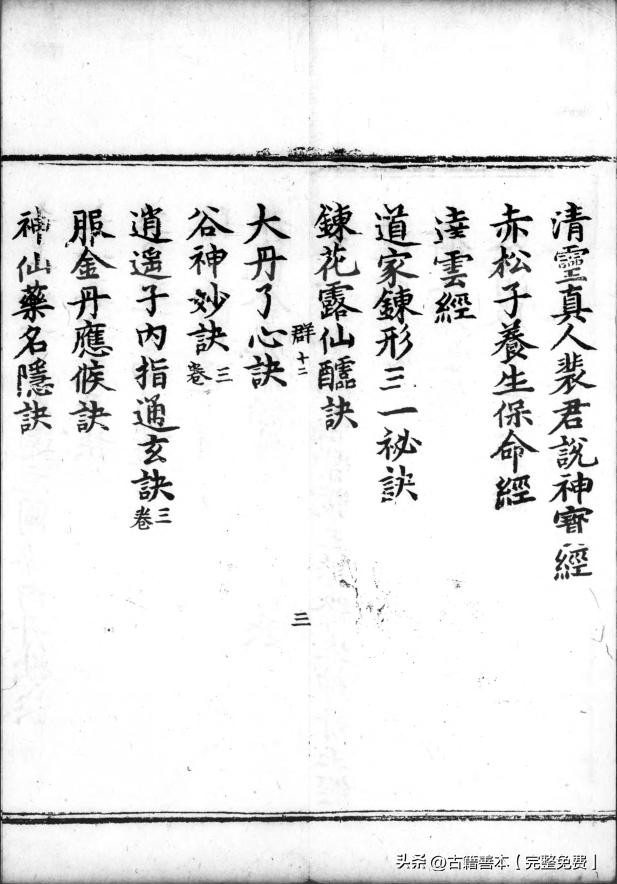 清靈真人裴君說神寶經
赤松子養生保命經
逵雲經
道家鍊形三一祕訣
鍊花露仙醹訣
群十二
三
大丹了心訣
谷神妙訣三卷
逍遙子內指通玄訣三卷
服金丹應候訣
神仙藥名隱訣
头条 @古籍善本【完整免费】